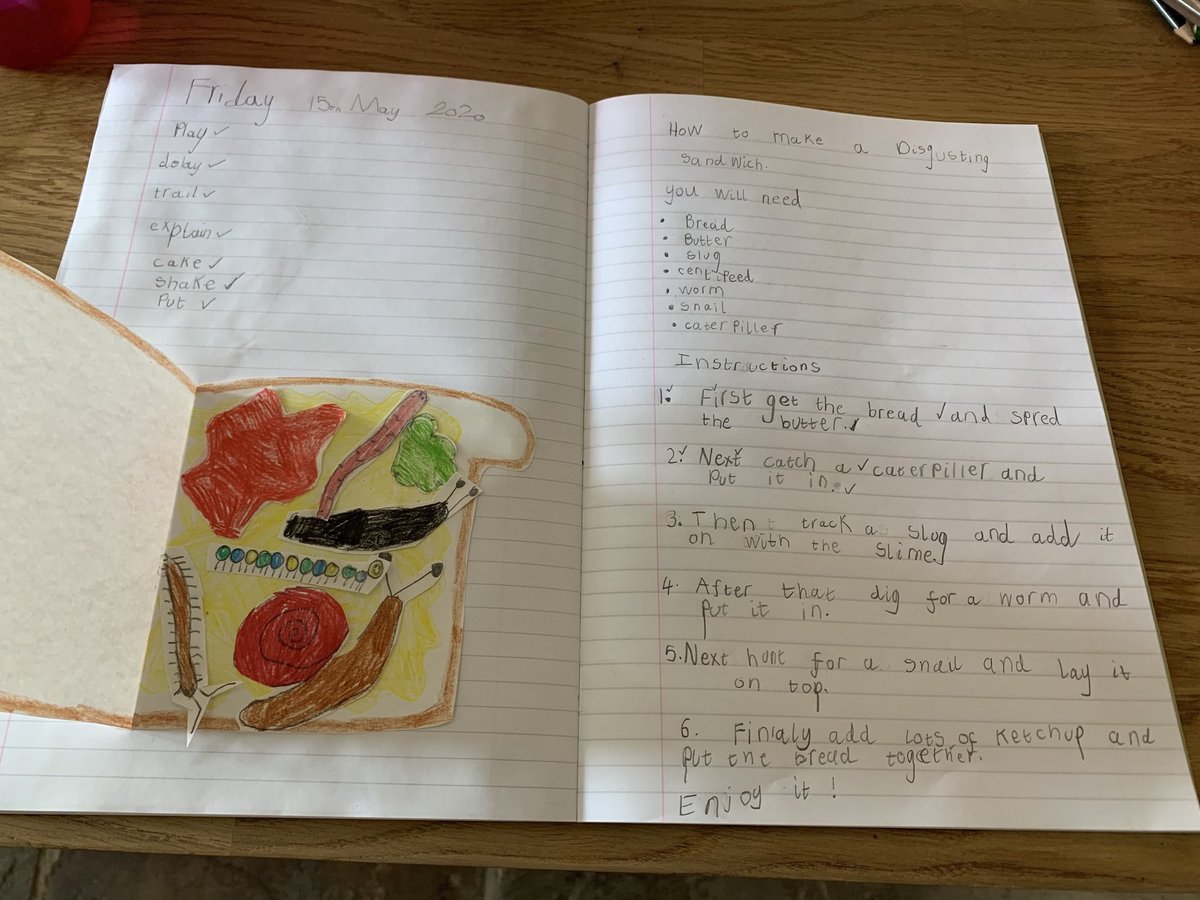 Friday 15th May 2020
Play ✓
delay ✓
trail ✓
explain ✓
cake ✓
shake ✓
Put ✓
How to make a Disgusting
sandwich.
you will need
• Bread
• Butter
• slug
• centipeed
• worm
• snail
• caterpiller
Instructions
1. First get the bread ✓ and spred
the butter. ✓
2. Next catch a ✓ caterpiller and
put it in. ✓
3. Then track a slug and add it
on with the slime.
4. After that dig for a worm and
put it in.
5. Next hunt for a snail and lay it
on top.
6. Finaly add lots of Ketchup and
put the bread together.
Enjoy it!